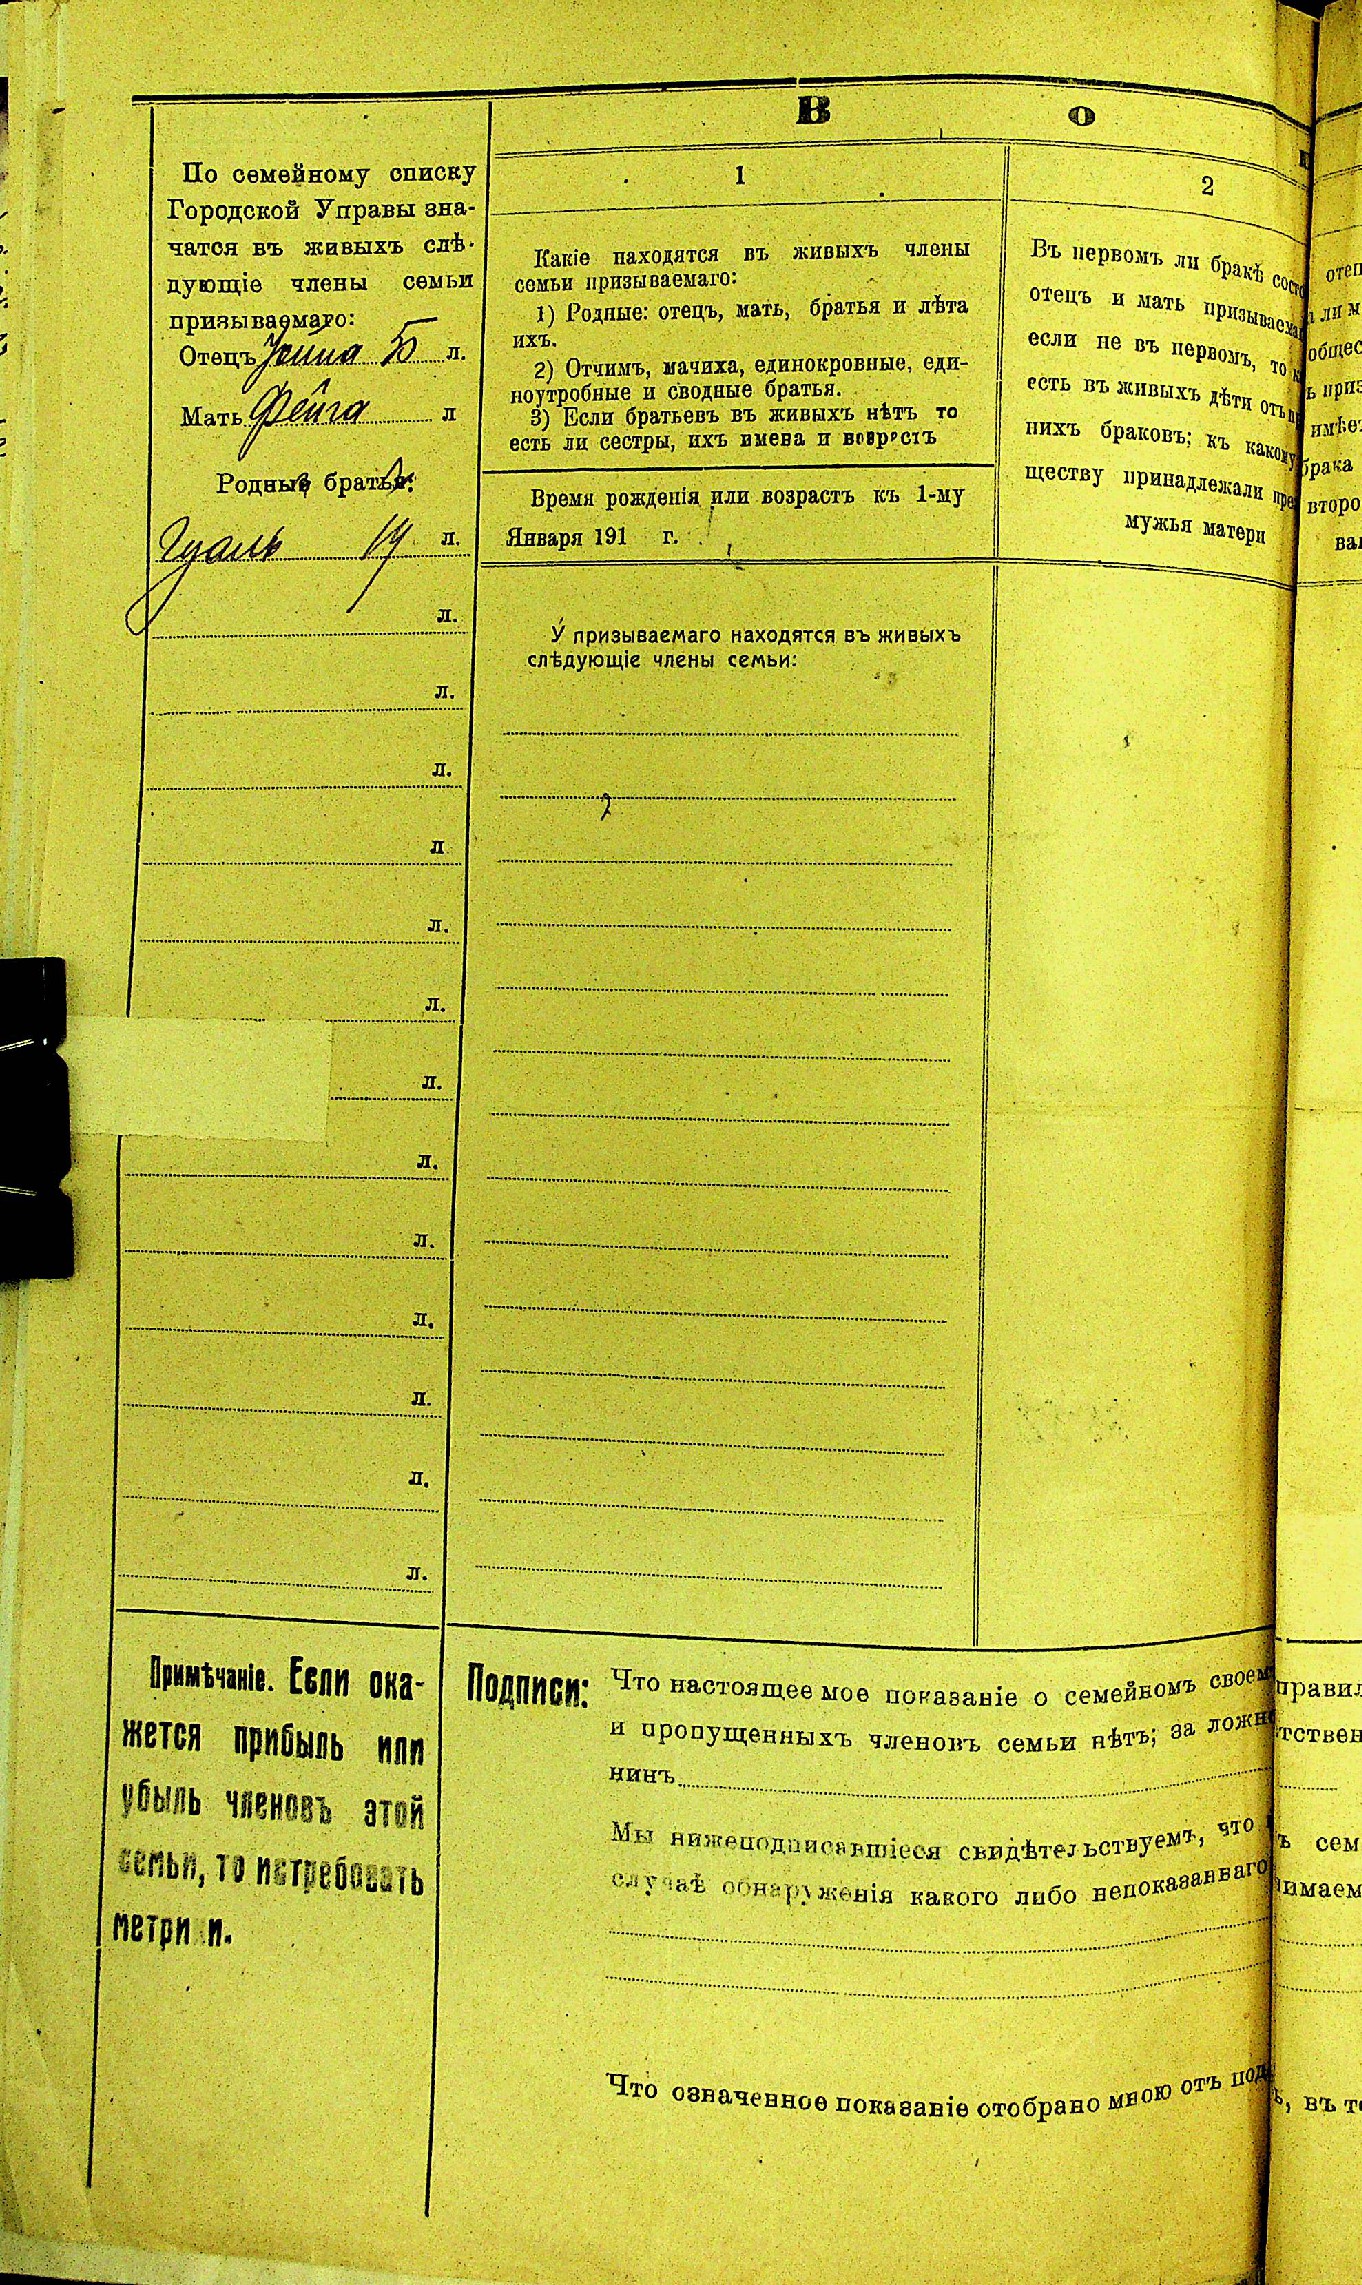 В о
По семейному списку
Городской Управы зна-
чатся въ живыхъ слѣ-
дующіе члены семьи
призываемаго:
Отецъ Іойна 55 л.
Мать Фейга л
Родные братья:
19 л.
л.
л.
л.
л
л.
л.
л.
л.
л.
л.
л.
л.
л.
1
Какіе находятся въ живыхъ члены
семьи призываемаго:
1) Родные: отецъ, мать, братья и лѣта
ихъ.
2) Отчимъ, мачиха, единокровные, еди-
ноутробные и сводные братья.
3) Если братьевъ въ живыхъ нѣтъ то
есть ли сестры, ихъ имева и возрастъ
Время рожденія или возрастъ къ 1-му
Января 191 г.
У призываемаго находятся въ живыхъ
слѣдующіе члены семьи:
2
Въ первомъ ли бракѣ
отецъ и мать
если не въ первомъ, то
есть въ живыхъ дѣти отъ
нихъ браковъ; къ
ществу принадлежали
мужья матери
Примѣчаніе. Если ока-
жется прибыль или
убыль членовъ этой
семьи, то истребовать
метри и.
Подписи:
Что настоящее мое показаніе о семейномъ своемъ
и пропущенныхъ членовъ семьи нѣтъ; за
нинъ
Мы нижеподписавшіеся свидѣтельствуемъ, что
случаѣ обнаруженія какого либо непоказаннаго
Что означенное показаніе отобрано мною отъ